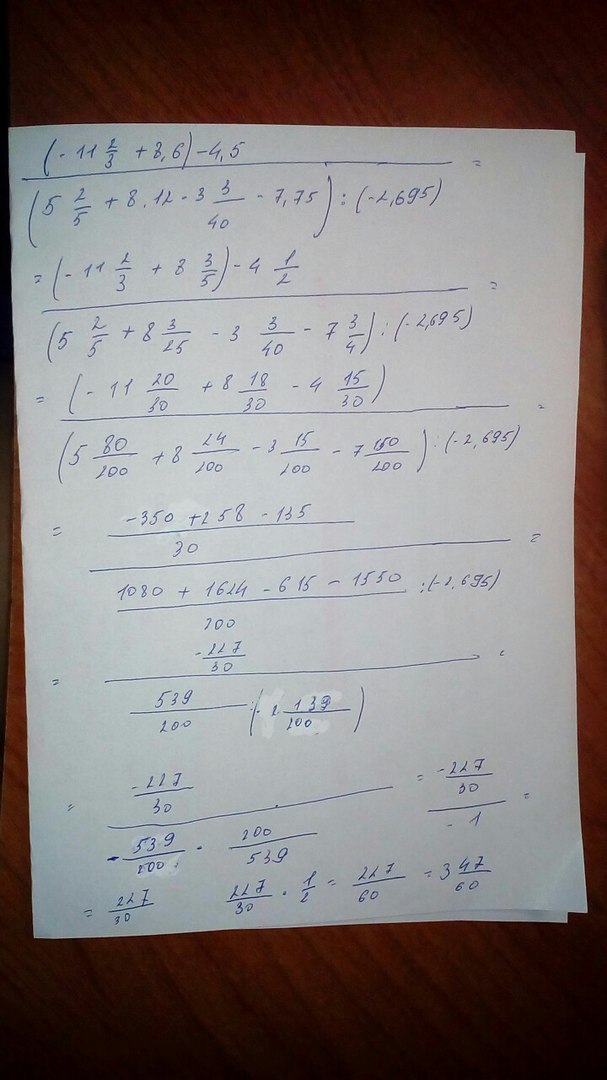 (-11 2/3 + 8,6) - 4,5 =
(5 2/5 + 8.12 - 3 3/40 - 7,75) : (-2,695)
= (-11 2/3 + 8 3/5) - 4 1/2 =
(5 2/5 + 8 3/25 - 3 3/40 - 7 3/4) : (-2,695)
= (-11 20/30 + 8 18/30 - 4 15/30) =
(5 80/200 + 8 24/200 - 3 15/200 - 7 150/200) : (-2,695)
= -350 + 258 - 135 / 30 =
1080 + 1624 - 615 - 1550 / 200 : (-2,695)
= -227/30 =
539/200 : (-2 139/200)
= -227/30 = -227/30 =
-539/200 · 200/539 -1
= 227/30 227/30 · 1/2 = 227/60 = 3 47/60